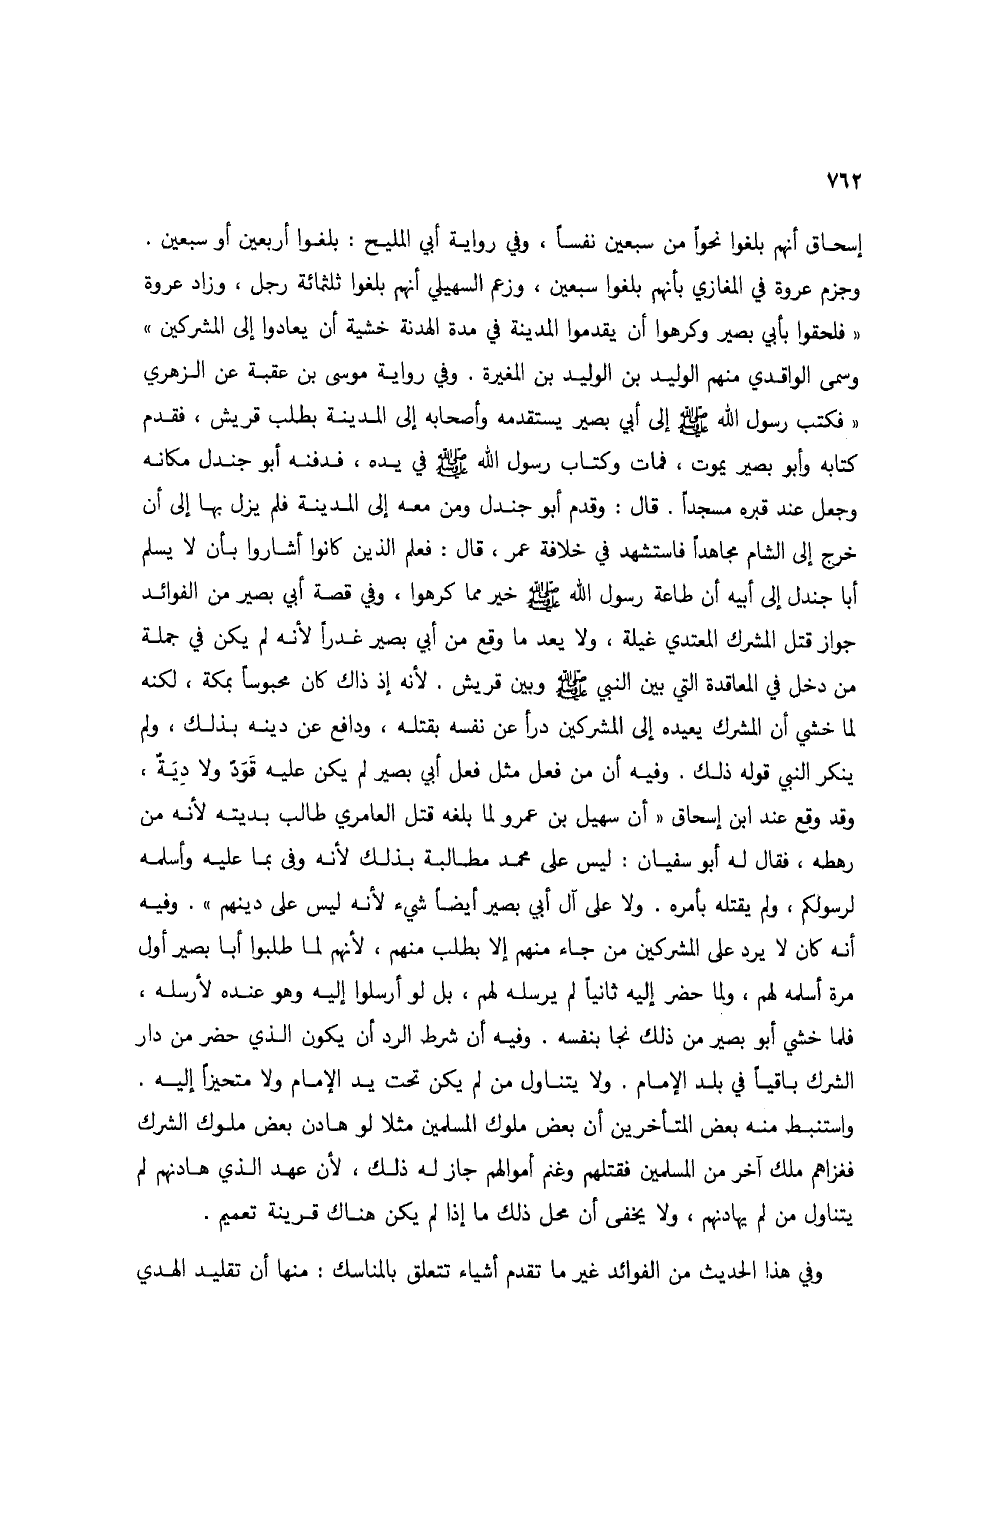 ٧٦٢
إسحاق أنهم بلغوا نحواً من سبعين نفساً ، وفي رواية أبي المليح : بلغوا أربعين أو سبعين .
وجزم عروة في المغازي بأنهم بلغوا سبعين ، وزعم السهيلي أنهم بلغوا ثلثمائة رجل ، وزاد عروة
« فلحقوا بأبي بصير وكرهوا أن يقدموا المدينة في مدة الهدنة خشية أن يعادوا إلى المشركين »
وسمى الواقدي منهم الوليد بن الوليد بن المغيرة . وفي رواية موسى بن عقبة عن الزهري
« فكتب رسول الله ﷺ إلى أبي بصير يستقدمه وأصحابه إلى المدينة بطلب قريش ، فقدم
كتابه وأبو بصير يموت ، فمات وكتاب رسول الله ﷺ في يده ، فدفنه أبو جندل مكانه
وجعل عند قبره مسجداً . قال : وقدم أبو جندل ومن معه إلى المدينة فلم يزل بها إلى أن
خرج إلى الشام مجاهداً فاستشهد في خلافة عمر ، قال : فعلم الذين كانوا أشاروا بأن لا يسلم
أبا جندل إلى أبيه أن طاعة رسول الله ﷺ خير مما كرهوا ، وفي قصة أبي بصير من الفوائد
جواز قتل المشرك المعتدي غيلة ، ولا يعد ما وقع من أبي بصير غدراً لأنه لم يكن في جملة
من دخل في المعاقدة التي بين النبي ﷺ وبين قريش . لأنه إذ ذاك كان محبوساً بمكة ، لكنه
لما خشي أن المشرك يعيده إلى المشركين درأ عن نفسه بقتله ، ودافع عن دينه بذلك ، ولم
ينكر النبي قوله ذلك . وفيه أن من فعل مثل فعل أبي بصير لم يكن عليه قَوَدٌ ولا دِيَةٌ ،
وقد وقع عند ابن إسحاق « أن سهيل بن عمرو لما بلغه قتل العامري طالب بديته لأنه من
رهطه ، فقال له أبو سفيان : ليس على محمد مطالبة بذلك لأنه وفى بما عليه وأسلمه
لرسولكم ، ولم يقتله بأمره . ولا على آل أبي بصير أيضاً شيء لأنه ليس على دينهم » . وفيه
أنه كان لا يرد على المشركين من جاء منهم إلا بطلب منهم ، لأنهم لما طلبوا أبا بصير أول
مرة أسلمه لهم ، ولما حضر إليه ثانياً لم يرسله لهم ، بل لو أرسلوا إليه وهو عنده لأرسله ،
فلما خشي أبو بصير من ذلك نجا بنفسه . وفيه أن شرط الرد أن يكون الذي حضر من دار
الشرك باقياً في بلد الإمام . ولا يتناول من لم يكن تحت يد الإمام ولا متحيزاً إليه .
واستنبط منه بعض المتأخرين أن بعض ملوك المسلمين مثلا لو هادن بعض ملوك الشرك
فغزاهم ملك آخر من المسلمين فقتلهم وغنم أموالهم جاز له ذلك ، لأن عهد الذي هادنهم لم
يتناول من لم يهادنهم ، ولا يخفى أن محل ذلك ما إذا لم يكن هناك قرينة تعميم .
وفي هذا الحديث من الفوائد غير ما تقدم أشياء تتعلق بالمناسك : منها أن تقليد الهدي